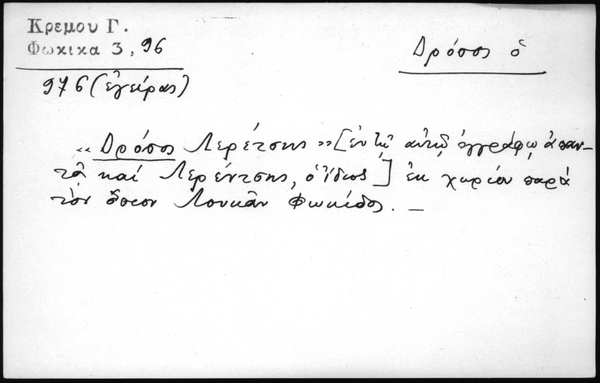 Κρεμου Γ.
Φωκικα 3, 96
Δρόσος ὁ
976 (ἐγείρας)
"Δρόσος Λερέτσης" [ἐν τῷ αὐτῷ ἐγγράφῳ ἀπαν-
τᾷ καί Λερέντσης, ὁ ἴδιος] ἐκ χωρίου παρά
τὸν ὅσιον Λουκᾶν Φωκίδος. —